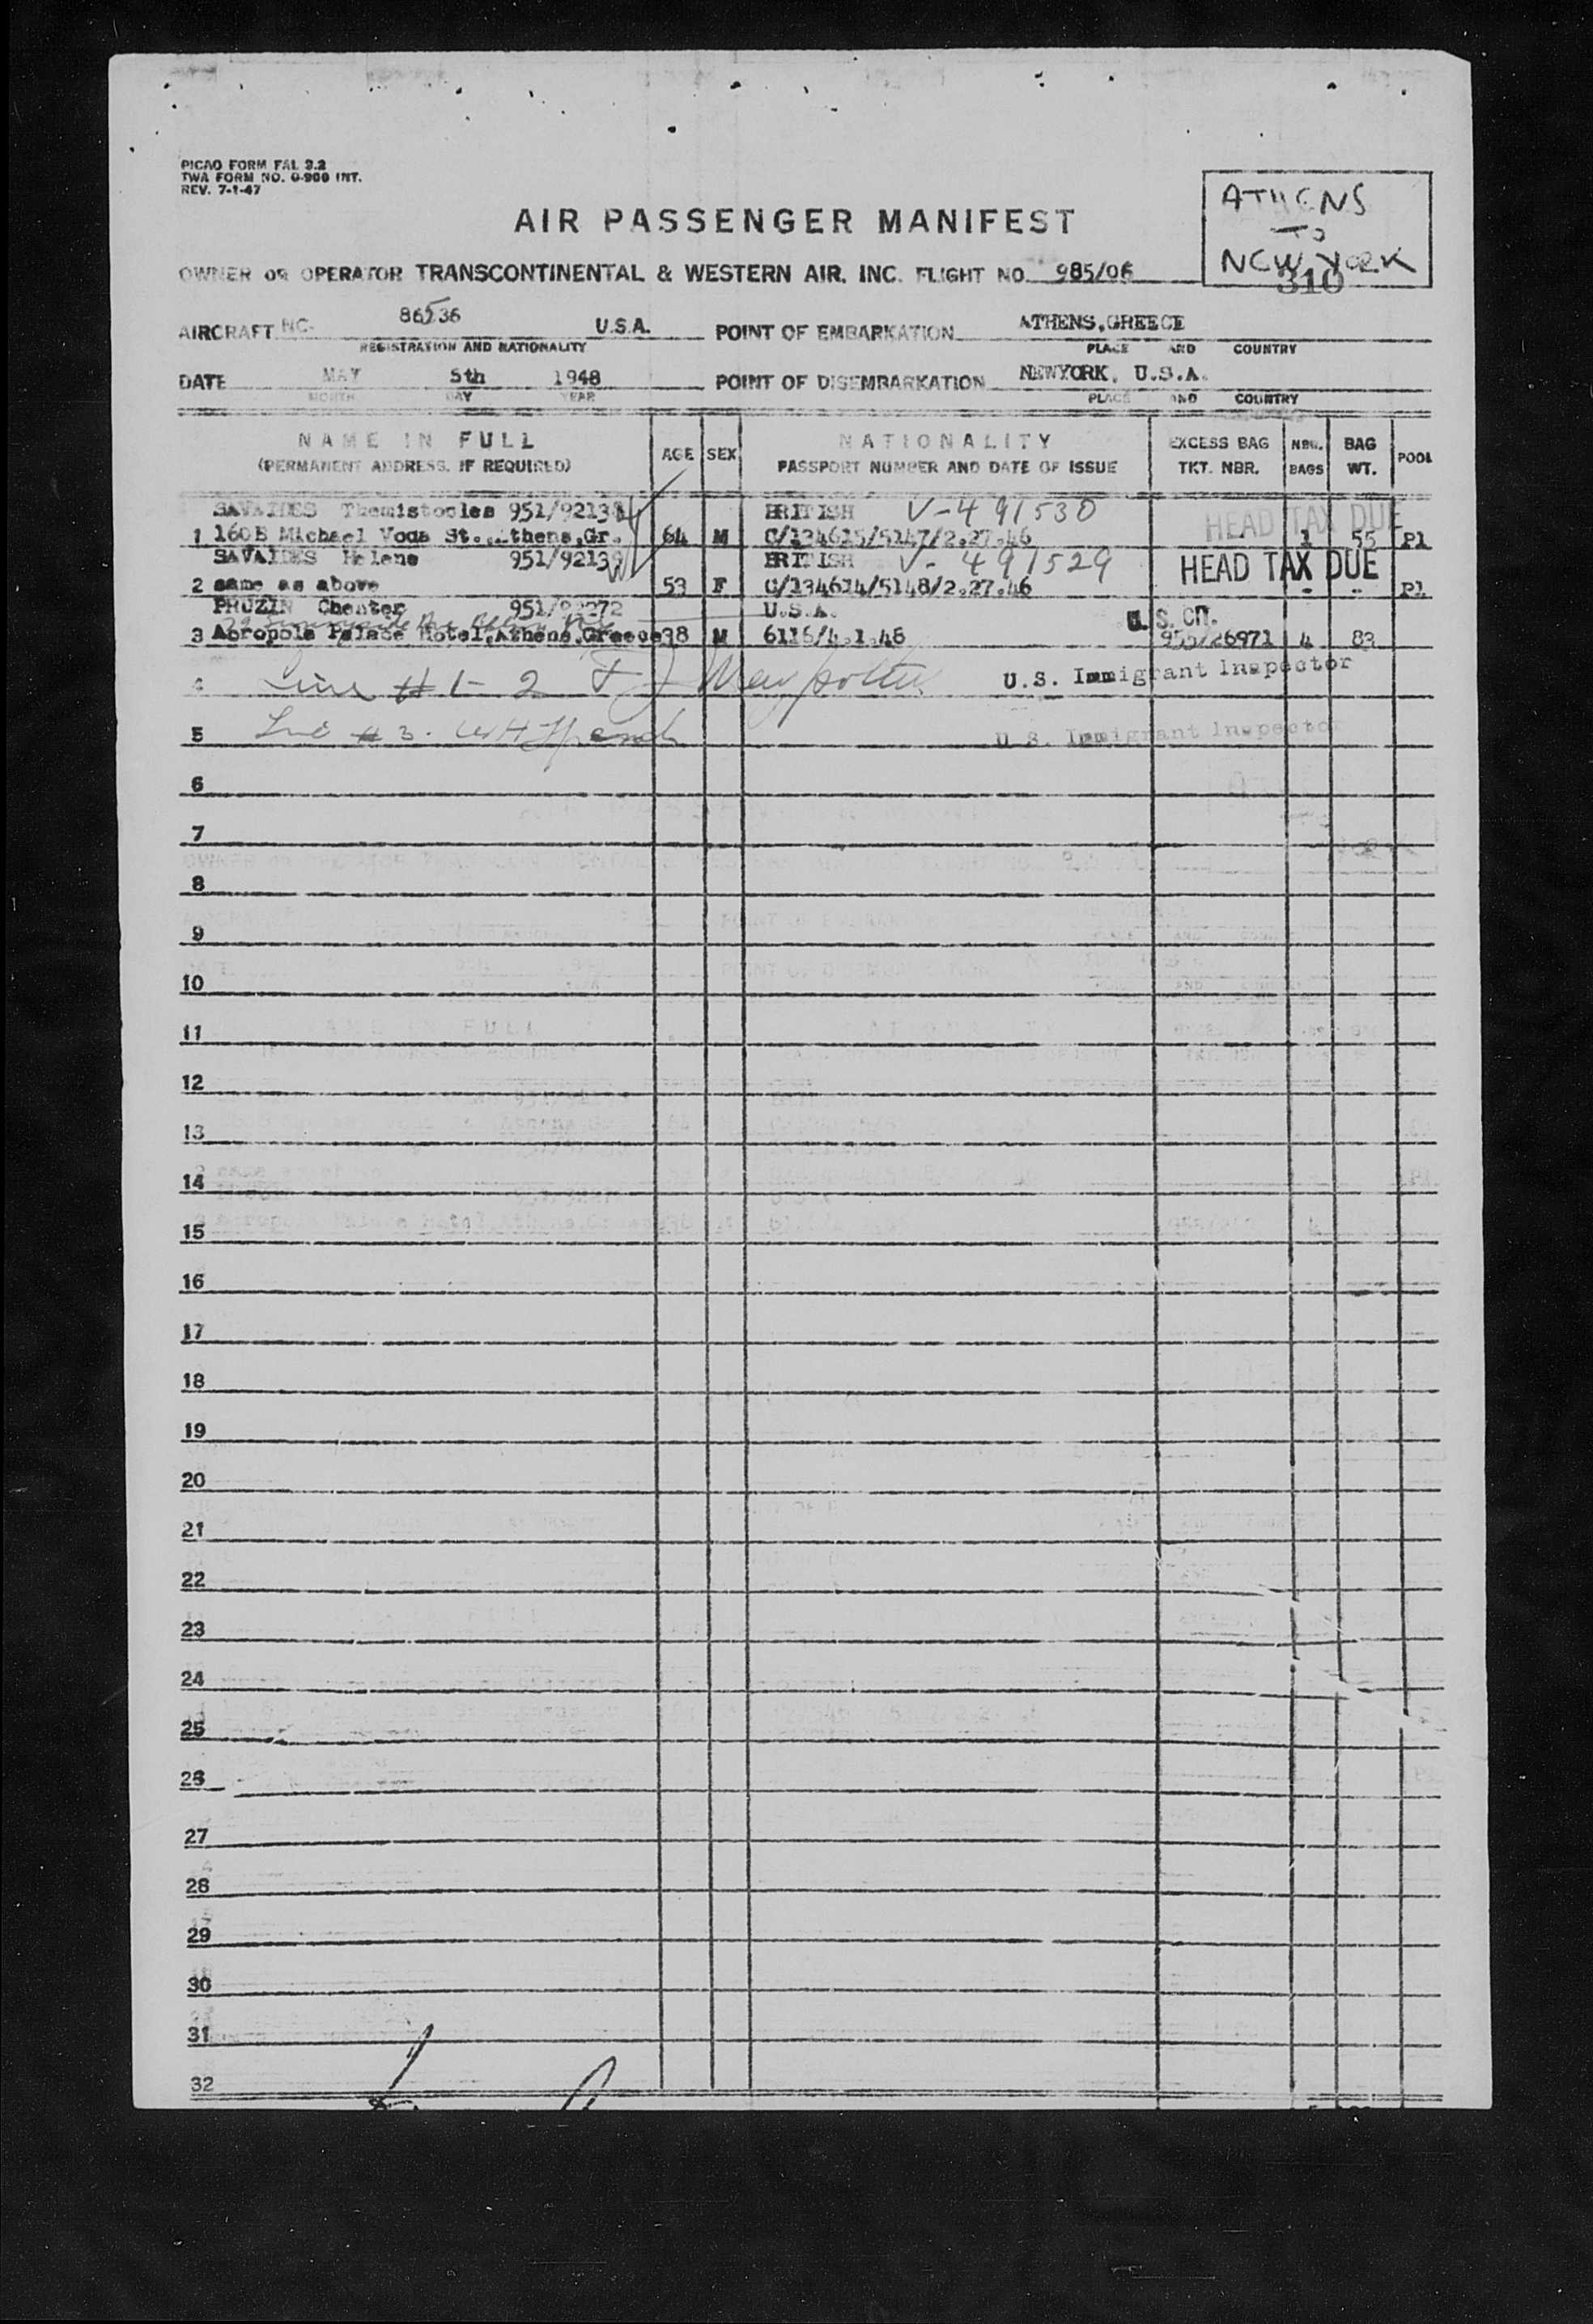 PICAO FORM FAL 2.2
TWA FORM NO. 0-900 INT.
REV. 7-1-47
ATHENS
TO
NEW YORK
310
AIR PASSENGER MANIFEST
OWNER OR OPERATOR TRANSCONTINENTAL & WESTERN AIR, INC. FLIGHT NO. 985/06
AIRCRAFT NC- 86536 U.S.A. POINT OF EMBARKATION ATHENS,GREECE
REGISTRATION AND NATIONALITY PLACE AND COUNTRY
DATE MAY 5th 1948 POINT OF DISEMBARKATION NEWYORK, U.S.A.
MONTH DAY YEAR PLACE AND COUNTRY
NAME IN FULL AGE SEX NATIONALITY EXCESS BAG NBR. BAG POOL
(PERMANENT ADDRESS, IF REQUIRED) PASSPORT NUMBER AND DATE OF ISSUE TKT. NBR. BAGS WT.
SAVAIDES Themistocles 951/92138 BRITISH V-491530 HEAD TAX DUE
1 160B Michael Voda St.,Athens,Gr. 64 M C/134615/5147/2.27.46 1 55 Pl
SAVAIDES Helene 951/92139 BRITISH V-491529 HEAD TAX DUE
2 same as above 53 F C/134614/5148/2.27.46 - - Pl
PRUZIN Chester 951/92272 U.S.A. U.S. CIT.
3 Acropole Palace Hotel,Athens,Greece 38 M 6116/4.1.48 955/26971 4 83
4 Line #1-2 U.S. Immigrant Inspector
5 Line #3. U.S. Immigrant Inspector
6
7
8
9
10
11
12
13
14
15
16
17
18
19
20
21
22
23
24
25
26
27
28
29
30
31
32